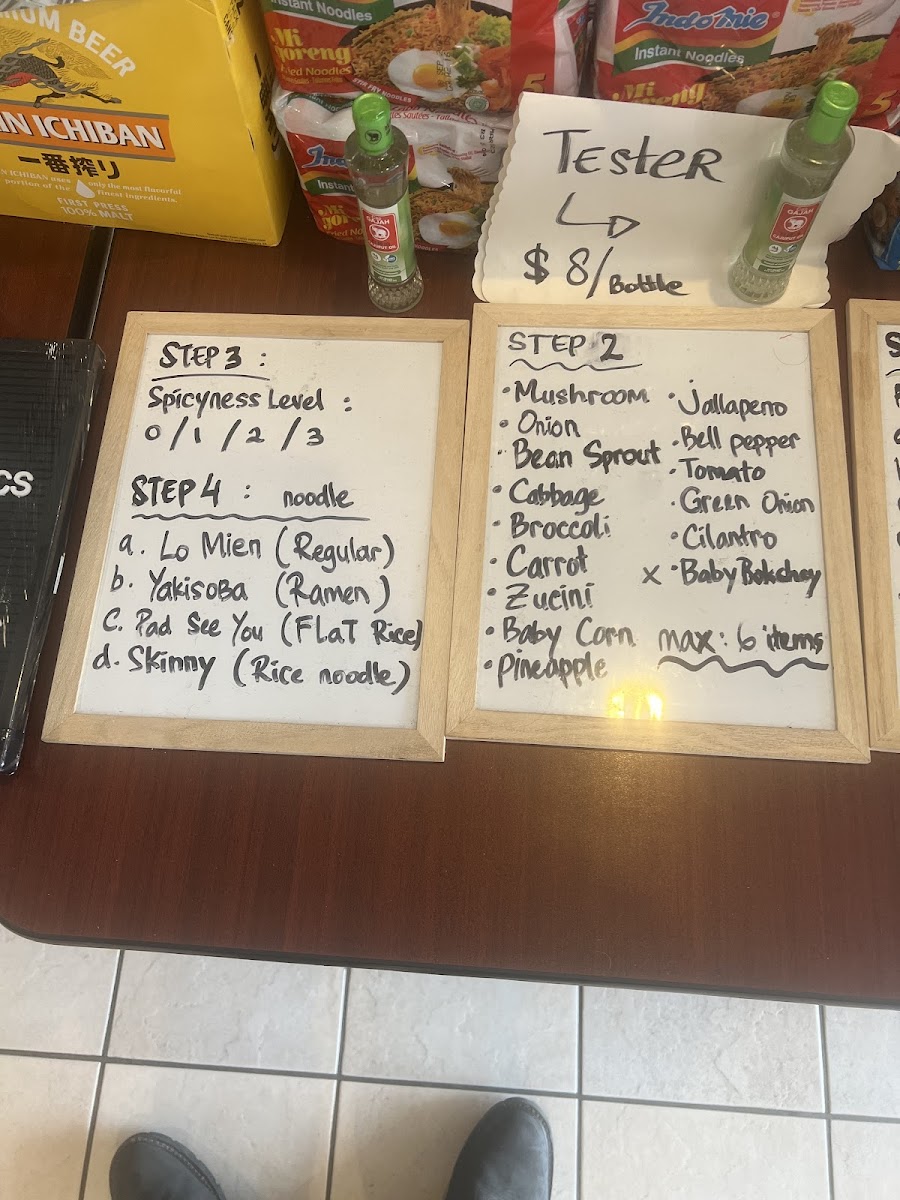 IUM BEER
IN ICHIBAN
一番搾り
N ICHIBAN uses only the most flavorful
portion of the finest ingredients.
FIRST PRESS
100% MALT
Instant Noodles
Mi
Goreng
Fried Noodles
STIR FRY NOODLES
5
Indomie
Instant Noodles
Mi Goreng
5
Instant
CAP
GAJAH
TESTER
$8/Bottle
GAJAH
CS
STEP 3 :
Spicyness Level :
0 / 1 / 2 / 3
STEP 4 : noodle
a. Lo Mien (Regular)
b. Yakisoba (Ramen)
c. Pad See You (FLaT Rice)
d. Skinny (Rice noodle)
STEP 2
• Mushroom
• Onion
• Bean Sprout
• Cabbage
• Broccoli
• Carrot
• Zucini
• Baby Corn
• Pineapple
• Jallapeno
• Bell pepper
• Tomato
• Green Onion
• Cilantro
x • Baby Bokchoy
max : 6 items
S